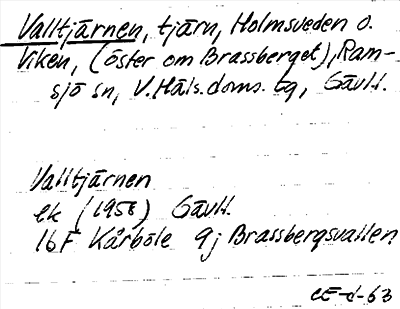 Valltjärnen, tjärn, Holmsveden o.
Viken, (öster om Brassberget), Ram-
sjö sn, V. Häls. doms. tg, Gävll.
Valltjärnen
ek (1958) Gävll.
16F Kårböle 9j Brassbergsvallen
CE-d-63